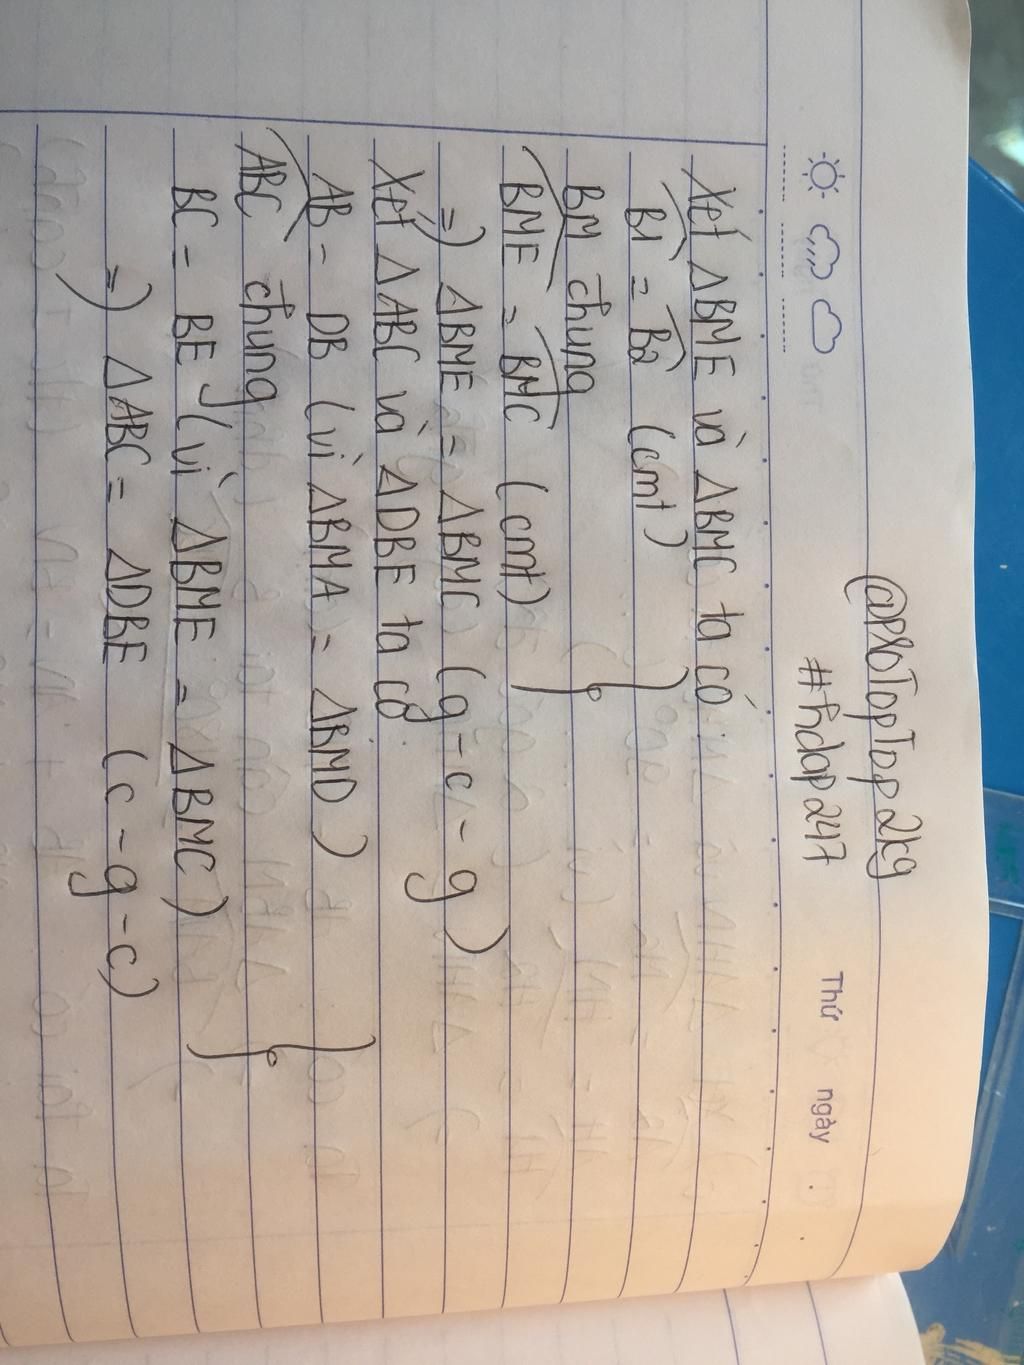 @DP80TopTop2kg
#hdap247
Thứ ngày
Xét ΔBME và ΔBMC ta có
B1 = B2 (cmt)
BM chung
BME = BMC (cmt)
=) ΔBME = ΔBMC (g-c-g)
Xét ΔABC và ΔDBE ta có
AB = DB (vì ΔBMA = ΔBMD)
ABC chung
BC = BE (vì ΔBME = ΔBMC)
=) ΔABC = ΔDBE (c-g-c)